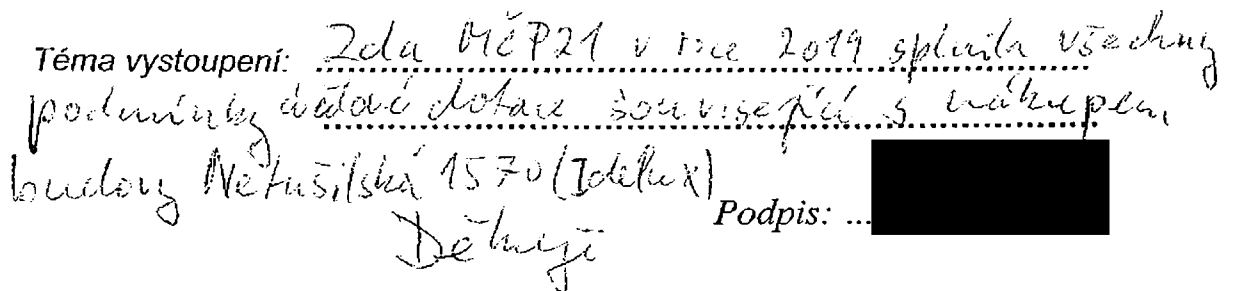 Téma vystoupení: Zda MČP21 v roce 2019 splnila všechny
podmínky účelové dotace související s nákupem
budovy Netušilská 1570 (Idelux)
Podpis: ...
Děkuji